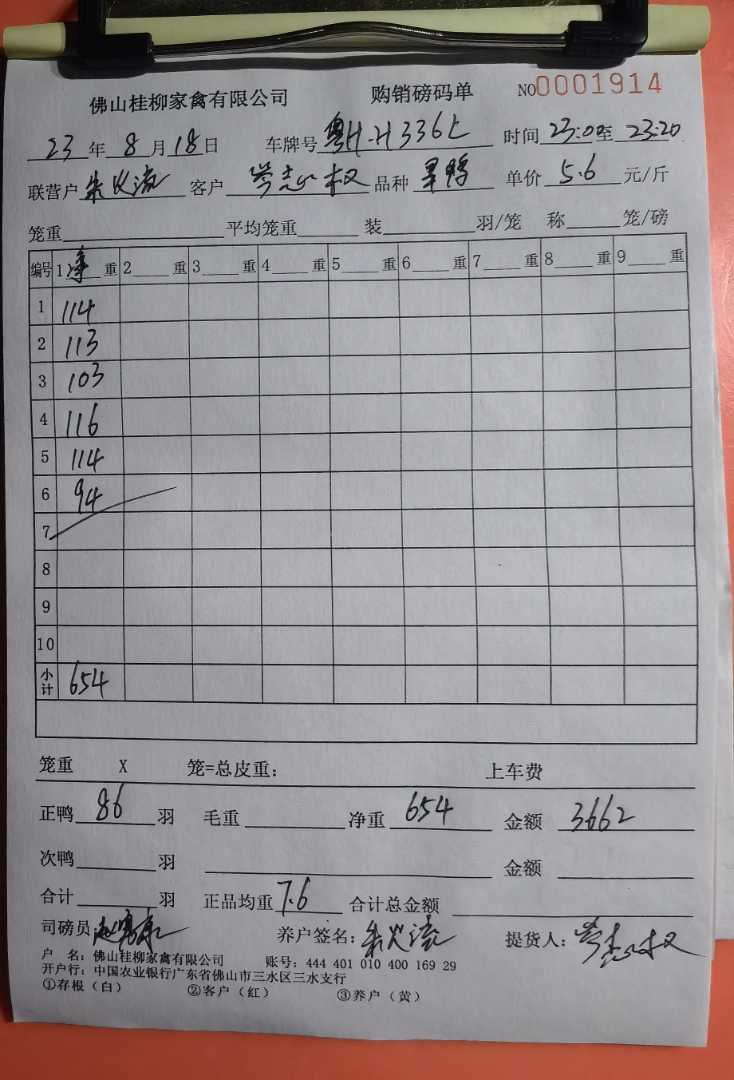 佛山桂柳家禽有限公司 购销磅码单 NO0001914
23年8月18日 车牌号粤H·H336 时间23:00至23:20
联营户朱火流 客户志权 品种 单价5.6元/斤
笼重 平均笼重 装 羽/笼 称 笼/磅
编号 1 净 重 2 重 3 重 4 重 5 重 6 重 7 重 8 重 9 重
1 114
2 113
3 103
4 116
5 114
6 94
7
8
9
10
小计 654
笼重 X 笼=总皮重： 上车费
正鸭86羽 毛重 净重654 金额3662
次鸭 羽 金额
合计 羽 正品均重7.6 合计总金额
司磅员 养户签名：朱火流 提货人：志权
户 名：佛山桂柳家禽有限公司 账号：444 401 010 400 169 29
开户行：中国农业银行广东省佛山市三水区三水支行
①存根（白） ②客户（红） ③养户（黄）